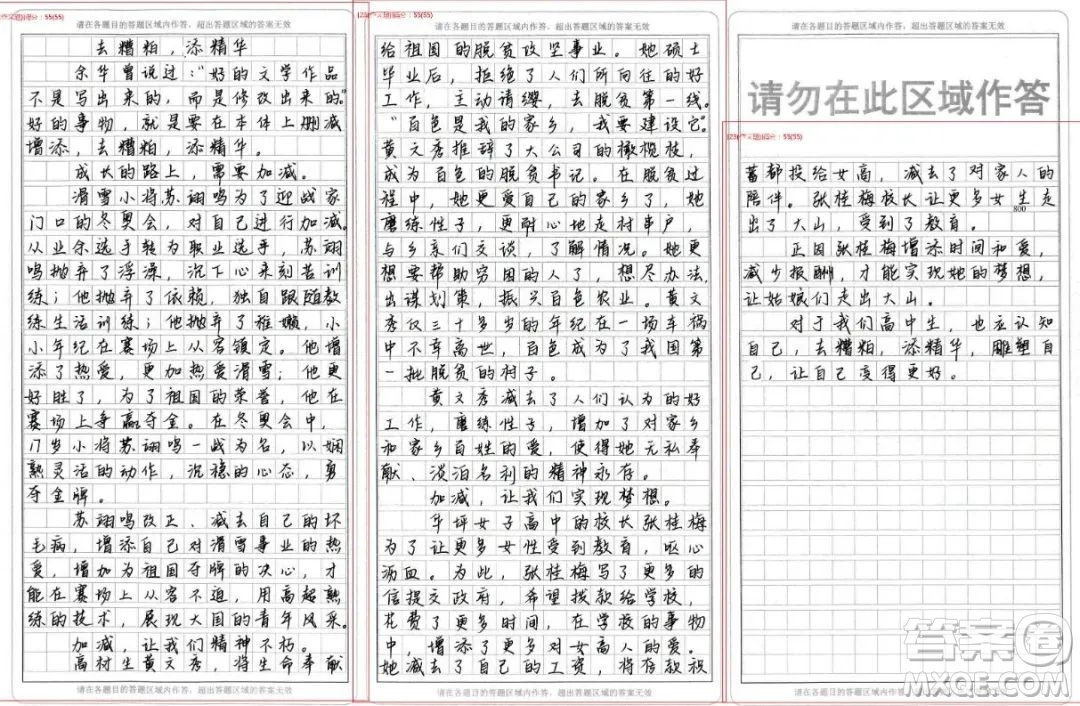 请在各题目的答题区域内作答，超出答题区域的答案无效
去糟粕，添精华
余华曾说过：“好的文学作品
不是写出来的，而是修改出来的。”
好的事物，就是要在本体上删减
增添，去糟粕，添精华。
成长的路上，需要加减。
滑雪小将苏翊鸣为了迎战家
门口的冬奥会，对自己进行加减。
从业余选手转为职业选手，苏翊
鸣抛弃了浮澡，沉下心来刻苦训
练；他抛弃了依赖，独自跟随教
练生活训练；他抛弃了稚嫩，小
小年纪在赛场上从容镇定。他增
添了热爱，更加热爱滑雪；他更
好胜了，为了祖国的荣誉，他在
赛场上争赢夺金。在冬奥会中，
17岁小将苏翊鸣一战为名，以娴
熟灵活的动作，沉稳的心态，勇
夺金牌。
苏翊鸣改正、减去自己的坏
毛病，增添自己对滑雪事业的热
爱，增加为祖国夺牌的决心，才
能在赛场上从容不迫，用高超熟
练的技术，展现大国的青年风采。
加减，让我们精神不朽。
高材生黄文秀，将生命奉献
请在各题目的答题区域内作答，超出答题区域的答案无效
请在各题目的答题区域内作答，超出答题区域的答案无效
给祖国的脱贫攻坚事业。她硕士
毕业后，拒绝了人们所向往的好
工作，主动请缨，去脱贫第一线。
“百色是我的家乡，我要建设它。”
黄文秀推辞了大公司的橄榄枝，
成为百色的脱贫书记。在脱贫过
程中，她更爱自己的家乡了，她
磨练性子，更耐心地走村串户，
与乡亲们交谈，了解情况。她更
想要帮助穷困的人了，想尽办法，
出谋划策，振兴百色农业。黄文
秀仅三十多岁的年纪在一场车祸
中不幸离世，百色成为了我国第
一批脱贫的村子。
黄文秀减去了人们认为的好
工作，磨练性子，增加了对家乡
和家乡百姓的爱，使得她无私奉
献、淡泊名利的精神永存。
加减，让我们实现梦想。
华坪女子高中的校长张桂梅
为了让更多女性受到教育，呕心
沥血。为此，张桂梅写了更多的
信提交政府，希望拨款给学校，
花费了更多时间，在学校的事物
中，增添了更多对女高人的爱。
她减去了自己的工资，将存款积
请在各题目的答题区域内作答，超出答题区域的答案无效
请在各题目的答题区域内作答，超出答题区域的答案无效
请勿在此区域作答
蓄都投给女高，减去了对家人的
陪伴。张桂梅校长让更多女生走
出了大山，受到了教育。
800
正因张桂梅增添时间和爱，
减少报酬，才能实现她的梦想，
让姑娘们走出大山。
对于我们高中生，也应认知
自己，去糟粕，添精华，雕塑自
己，让自己变得更好。
答案卷
MXQE.COM
请在各题目的答题区域内作答，超出答题区域的答案无效